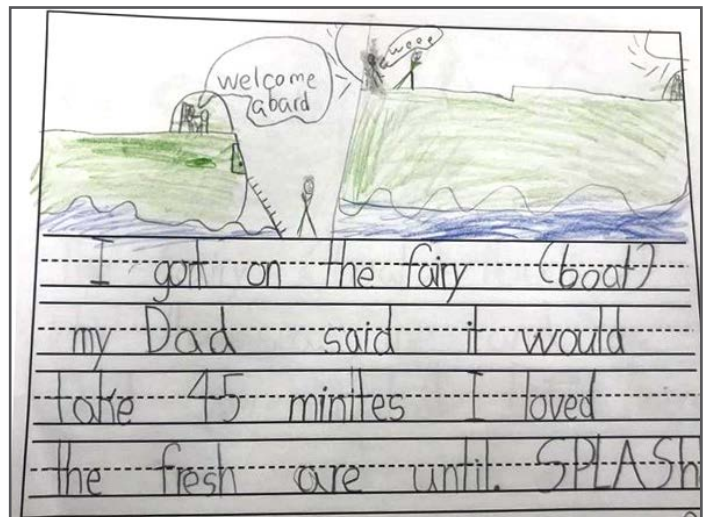 welcome
abard
weee
I gott on the fairy (boat)
my Dad said it would
take 45 minites I loved
the fresh are until. SPLASh